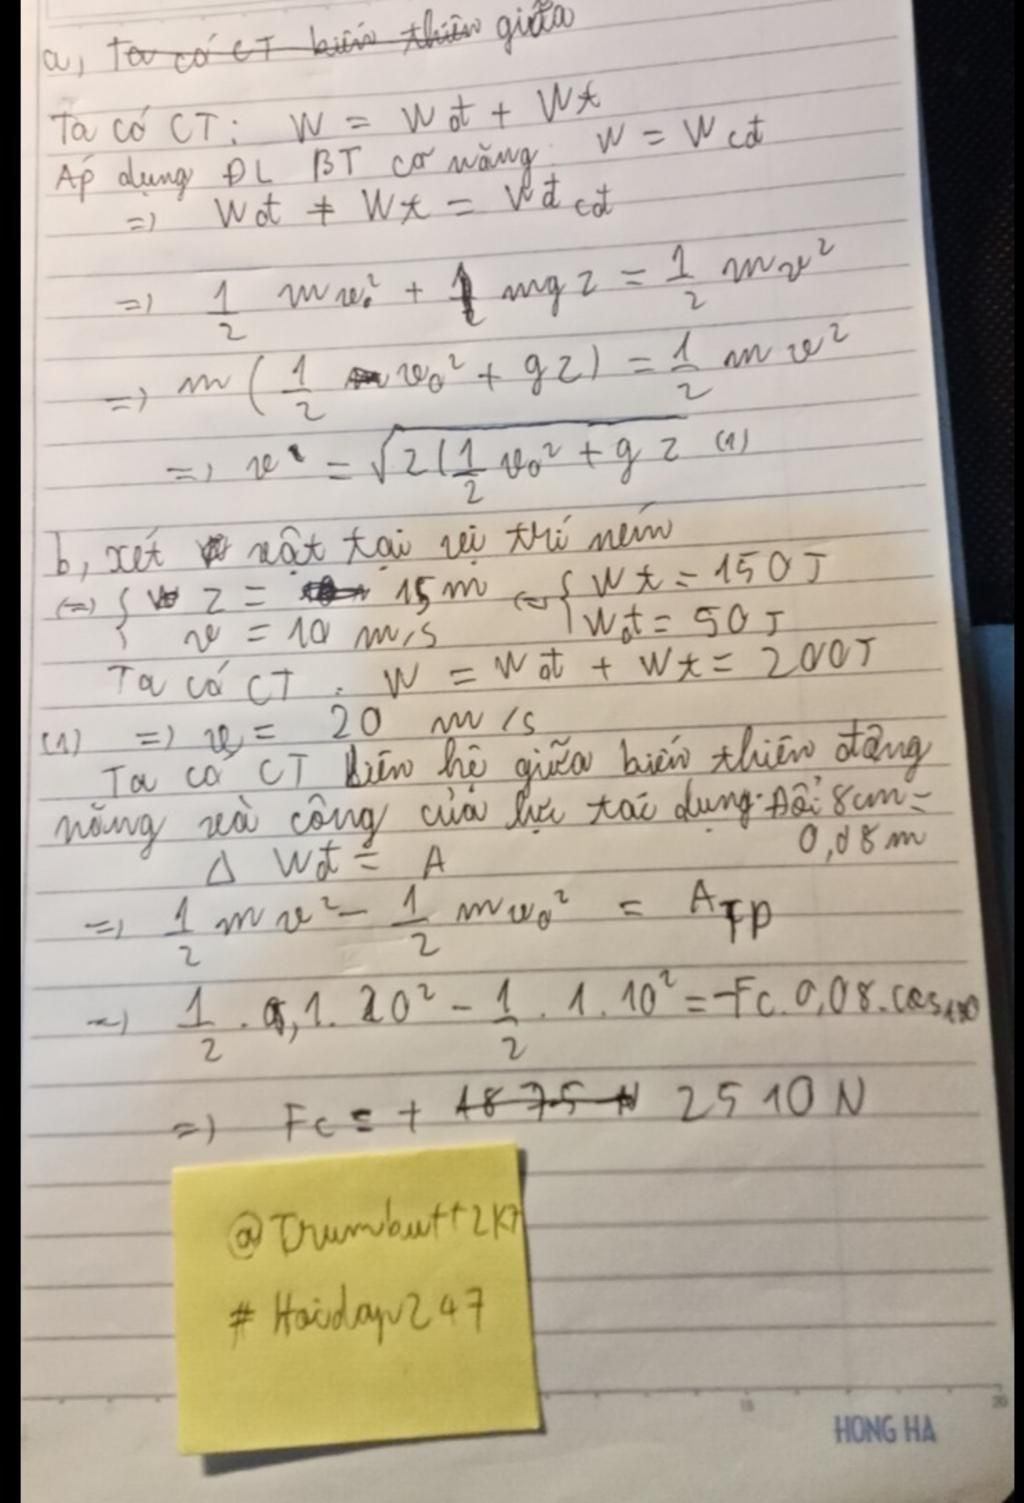 a, Ta có CT biến thiên giữa
Ta có CT: W = Wđ + Wt
Áp dụng ĐL BT cơ năng: W = Wcđ
=> Wđ + Wt = Wđcđ
=> 1/2 mv₀² + mgz = 1/2 mv²
=> m(1/2 v₀² + gz) = 1/2 mv²
=> v = √2(1/2 v₀² + gz (1)
b, xét vật tại vị trí ném
(=) { z = 15m (=) { Wt = 150J
v = 10 m/s Wđ = 50J
Ta có CT: W = Wđ + Wt = 200J
(1) => v = 20 m/s
Ta có CT liên hệ giữa biến thiên động
năng và công của lực tác dụng. Đổi 8cm =
0,08m
Δ Wđ = A
=> 1/2 mv² - 1/2 mv₀² = A
=> 1/2 . 0,1. 20² - 1/2 . 1. 10² = -Fc. 0,08. cos180
=> Fc = + 1875 N 2510 N
@Trumbutt2k7
#Hoidap247
HONG HA